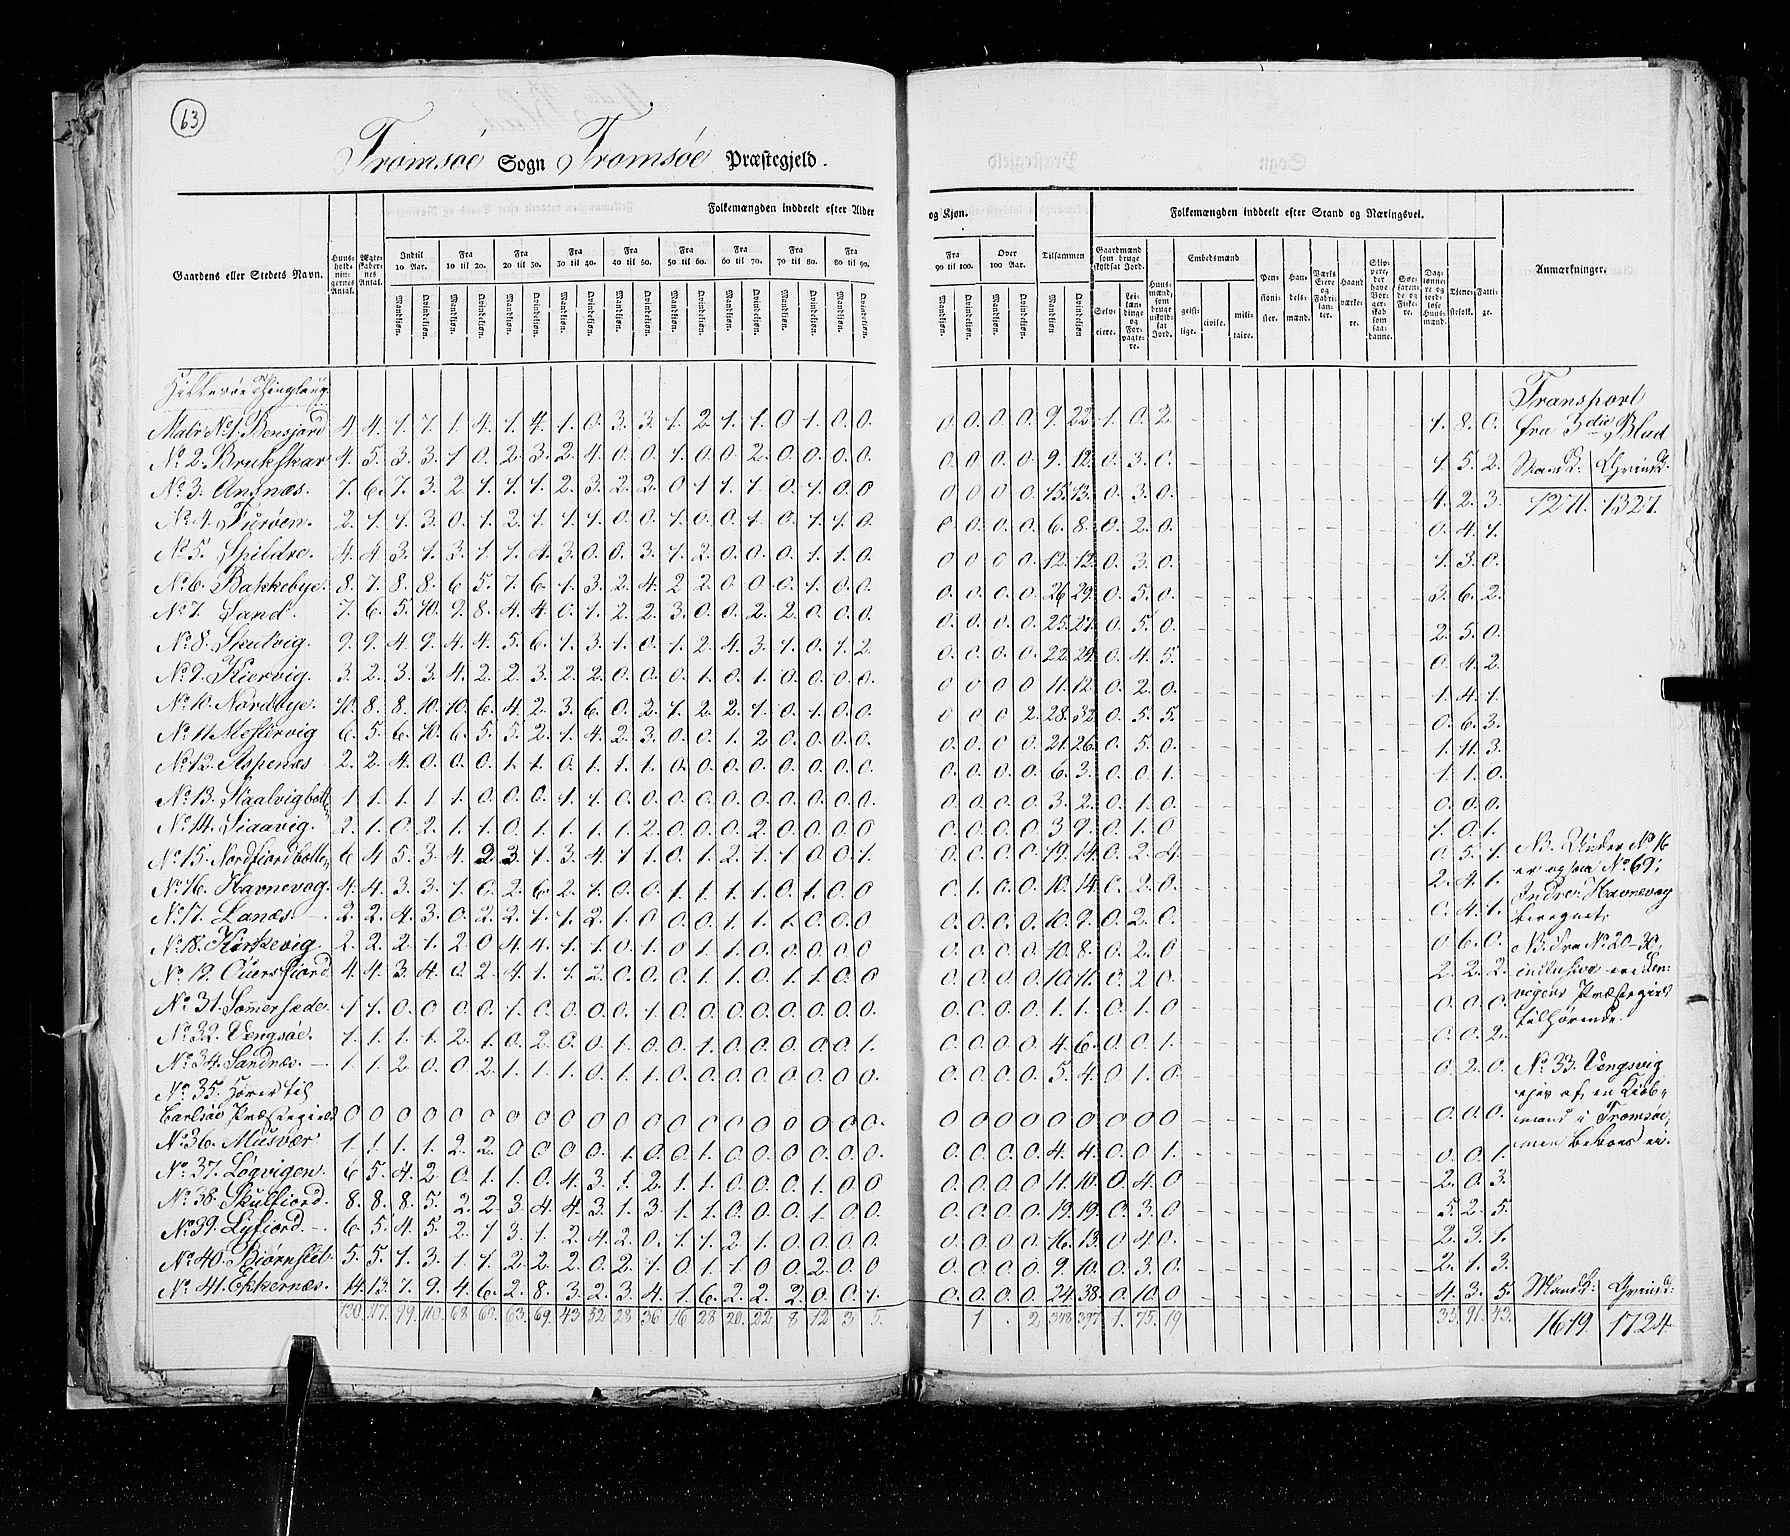 63
Tromsöe Sogn Tromsöe Præstegjeld.
Gaardens eller Stedets Navn.
Huusholdningernes Antal.
Ægteskabernes Antal.
Folkemængden inddeelt efter Alder og Kjøn.
Indtil 10 Aar. Fra 10 til 20. Fra 20 til 30. Fra 30 til 40. Fra 40 til 50. Fra 50 til 60. Fra 60 til 70. Fra 70 til 80. Fra 80 til 90. Fra 90 til 100. Over 100 Aar. Tilsammen
Mandkjøn. Qvindekjøn.
Folkemængden inddeelt efter Stand og Næringsvei.
Gaardmænd som bruge skyldsat Jord.
Selveiere. Leilændinge og Forpagtere.
Huusmænd, som bruge uskyldsat Jord.
Embedsmænd
geistlige. civile. militaire.
Pensionister.
Handelsmænd.
Værkseiere og Fabrikanter.
Haandværkere.
Skippere, der have Borgerskab som saadanne.
Søefarende og Fiskere.
Daglønnere og jordløse Huusmænd.
Tjenestefolk.
Fattige.
Anmærkninger.
Hillesøe Thinglaug.
Matr. No 1. Bensjord 4. 4. 1. 7. 1. 4. 1. 4. 1. 0. 3. 3. 1. 2. 1. 1. 0. 1. 0. 0. 0. 0. 0. 0. 9. 22. 1. 0. 2. 1. 8. 0.
No 2. Brukskar 4. 5. 3. 3. 1. 0. 2. 3. 2. 4. 0. 0. 1. 0. 0. 2. 0. 0. 0. 0. 0. 0. 0. 0. 9. 12. 0. 3. 0. 1. 5. 2.
No 3. Ansnæs. 7. 6. 7. 3. 2. 1. 1. 1. 2. 3. 2. 2. 0. 1. 1. 1. 0. 1. 0. 0 0 0 0 0. 15. 13. 0. 3. 0. 4. 2. 3.
No 4. Furøen. 2. 1. 1. 3. 0. 1. 2. 1. 1. 1. 0. 0. 1. 0. 0. 1. 0. 1. 1. 0. 0 0. 0. 0. 6. 8. 0. 2. 0. 0. 4. 1.
No 5. Spildre. 4. 4. 3. 1. 3. 1. 1. 4. 3. 0. 0. 3. 1. 2. 0. 0. 0. 1. 1. 0. 0 0 0 0. 12. 12. 0. 3. 0. 1. 3. 0.
No 6. Bakkebye. 8. 7. 8. 8. 6. 5. 7. 6. 1. 3. 2. 4. 2. 2. 0. 0. 0. 1. 0. 0. 0. 0. 0. 0. 26. 29. 0. 5. 0. 3. 6. 2.
No 7. Sand. 7. 6. 5. 10. 9. 8. 4. 4. 0. 1. 2. 2. 3. 0. 0. 2. 2. 0. 0. 0. 0. 0. 0. 0. 25. 27. 0. 5. 0. 2. 5. 0.
No 8. Skulvig. 9. 9. 4. 9. 4. 4. 5. 6. 1. 3. 1. 0. 1. 2. 4. 3. 1. 0. 1. 2. 0. 0. 0. 0. 22. 29. 0. 4. 5. 0. 4. 2.
No 9. Kiervig. 3. 2. 3. 3. 4. 2. 2. 3. 2. 2. 0. 0. 0. 1. 0. 1. 0. 0. 0. 0. 0 0 0 0 11. 12. 0. 2. 0. 1. 4. 1.
No 10. Nordbye. 10. 8. 8. 10. 10. 6. 4. 2. 3. 6. 0. 2. 1. 2. 2. 1. 0. 1. 0. 0. 0 0 0 2. 28. 32. 0. 5. 5. 0. 6. 3.
No 11. Mestervig 6. 5. 6. 10. 6. 5. 5. 2. 1. 4. 2. 3. 0. 0. 1. 2. 0. 0. 0. 0. 0. 0. 0 0. 21. 26. 0. 5. 0. 1. 11. 3.
No 12. Aspenæs 2. 2. 4. 0. 0. 0. 1. 1. 0. 1. 1. 1. 0. 0. 0. 0. 0. 0. 0. 0. 0. 0. 0. 0. 6. 3. 0. 0 1. 1. 1. 0.
No 13. Staalvigbotten 1. 1. 1. 1. 1. 0. 0. 0. 1. 1. 0. 0. 0. 0. 0. 0. 0. 0. 0. 0. 0. 0. 0. 0. 3. 2. 0. 1. 0. 0. 0. 0.
No 14. Siaavig. 2. 1. 0. 2. 1. 1. 0. 1. 1. 1. 1. 2. 0. 0. 0. 2. 0. 0. 0. 0 0. 0. 0. 0 3 9. 0. 1. 0 1. 0. 1.
No 15. Nordfiordbotten 6 4 5. 3. 4. 2 3. 1. 3. 4. 1. 1. 0. 1. 2. 1. 1. 0 0. 1. 0. 0. 0. 0. 19. 14. 0. 2. 4 0. 5. 1.
No 16. Havnevog. 4. 4. 3. 3. 1. 0. 2. 6. 2. 1. 0. 0. 1. 1. 1. 1. 0. 1. 0. 0 0. 1. 0. 0. 10. 14. 0. 2. 0. 2. 4. 1.
No 17. Lanæs. 2. 2. 4. 3. 0. 2. 2. 1. 1. 2. 1. 0 0. 0. 1. 1. 1. 0. 0. 0. 0. 0. 0. 0. 10. 9. 0. 2. 0. 0. 4. 1.
No 18. Kirkevig. 2. 2. 2. 1. 2. 0 4. 4. 1. 1. 0. 1. 0 1. 1. 0. 0. 0. 0. 0. 0. 0. 0. 0. 10. 8. 0. 2. 0 0. 6. 0.
No 19. Ouersfiord. 4. 4. 3. 4. 0. 2. 4. 1. 1. 2. 0. 0. 0. 1. 1. 0. 1. 1. 0. 0 0. 0. 0. 0. 10. 11. 0. 2 0. 2. 2. 2.
No 31. Somersæde. 1. 1. 0. 0. 0. 0. 1. 0. 0. 0. 0. 1. 0. 0. 0. 0. 0. 0. 0. 0. 0. 0. 0. 0. 1. 1. 0. 1. 0 0. 0. 0.
No 32. Vengsøe. 1. 1. 1. 1. 2. 1. 0. 2. 0. 0 1. 0. 0. 1. 0. 0. 0. 0. 0. 1. 0. 0. 0. 0 4. 6. 0. 0. 1. 0. 0. 2.
No 34. Sandnæs. 1. 1. 2. 0. 0 2. 1. 1. 1. 0. 1. 1. 0. 0. 0. 0. 0. 0. 0. 0. 0. 0. 0. 0. 5. 4. 0 1. 0. 0. 2. 0.
No 35. Hører til
Carlsøe Præstegield 0 0 0 0 0 0 0 0 0. 0. 0. 0. 0. 0. 0. 0. 0. 0. 0. 0. 0 0 0 0 0 0 0 0 0 0. 0. 0.
No 36. Musvær 1. 1. 1. 1. 2. 2. 0 0 0 0. 1. 0. 0. 1. 0. 0. 0. 0. 0. 0. 0. 0. 0. 0. 4. 4. 0. 0. 1. 0. 0. 1.
No 37. Løgvigen. 6 5. 4. 2 0. 1. 1. 0. 4. 3. 1. 2. 1. 1. 0. 0. 0. 1. 0. 0 0. 0. 0. 0. 11. 10. 0. 4. 0 2. 0. 3.
No 38. Skulfiord. 8. 8. 8. 5. 2. 2. 3. 4. 4. 3. 1. 3. 1. 1. 0. 0. 0. 1. 0. 0. 0. 0. 0. 0. 19. 19. 0. 3. 0 5. 2. 5.
No 39. Lyfiord. 6. 5. 4. 5. 2. 1 3. 1. 2. 4. 2. 0. 1. 1. 2. 1. 0. 0. 0. 0. 0. 0. 0. 0. 16. 13. 0 4 0. 2. 3. 1.
No 40. Biørnslet. 5. 5. 1. 3. 1. 1. 2. 2. 2. 0. 2. 1. 0. 1. 1. 0. 0. 2. 0. 0 0. 0. 0. 0. 9. 10. 0. 3. 0. 2. 1. 3.
No 41. Ekkernæs. 14. 13. 7. 9. 4. 6. 2. 8. 3. 2. 3. 4. 1. 6. 2. 2. 2. 0. 0. 1. 0. 0. 0. 0. 24. 38. 0. 10. 0 4. 3. 5.
130. 117. 99. 110. 68 63. 69. 43 28 36 16 28 20. 22 8 12 3 5. 1 2 348 397 1. 75. 19 35. 91. 43.
Transport
fra 3die Blad
Mandk: Qvindk.
1271. 1327.
NB. Under No 16
er ogsaa No 69,
Indre Havnevog
beregnet.
NB. fra No 20-30,
inclusive ere Len:
vigens Præstegield
tilhørende.
No 33. Vengsvig
ejes af en Kiøb:
mand i Tromsøe,
men beboes ei.
Mandk: Qvindk:
1619. 1724.